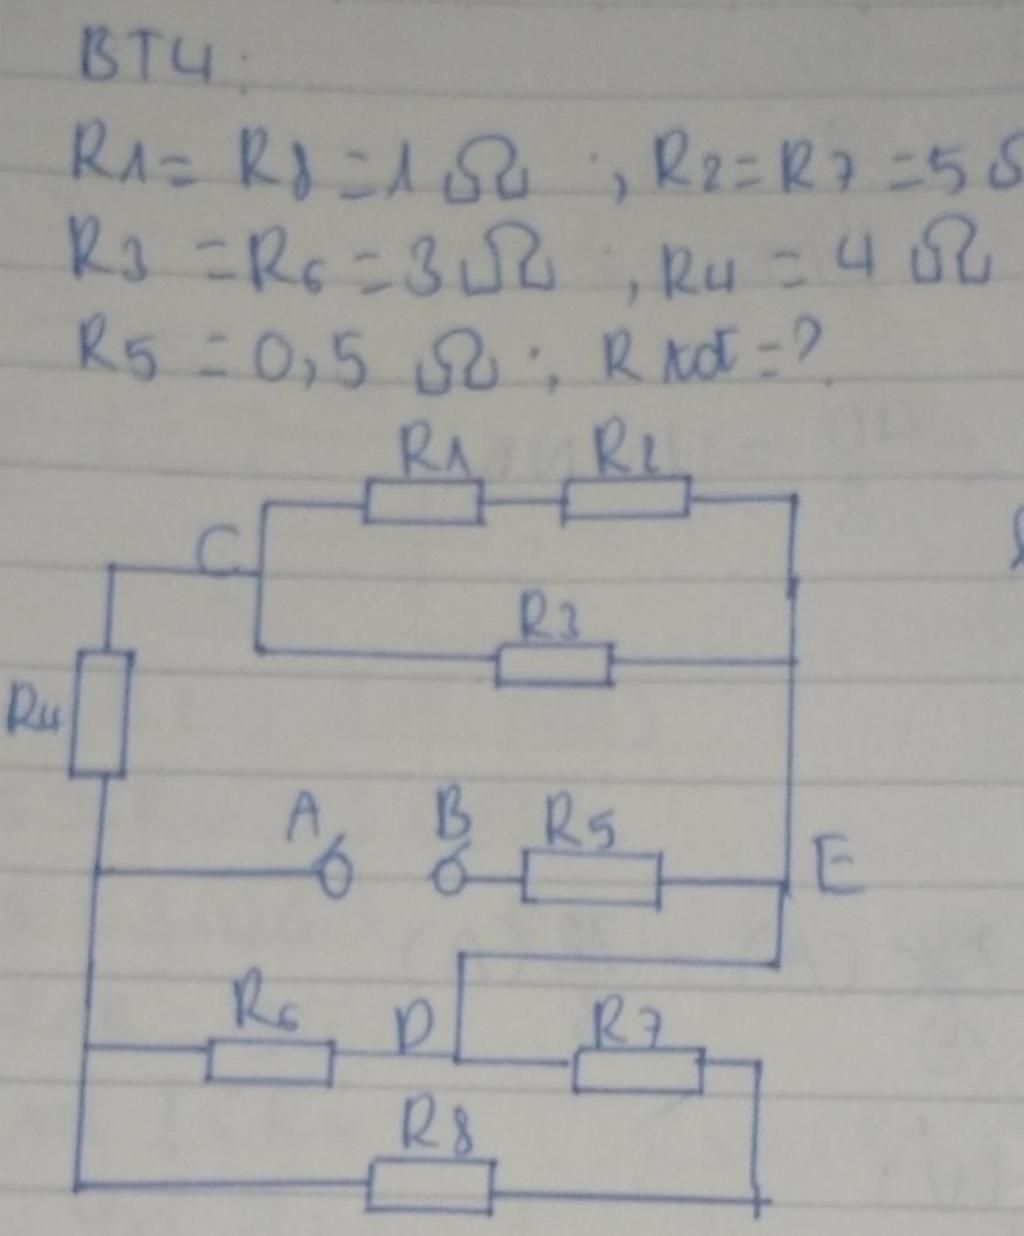 BT4.
R1 = R8 = 1 Ω ; R2 = R7 = 5 Ω
R3 = R6 = 3 Ω ; R4 = 4 Ω
R5 = 0,5 Ω ; R = ?
R1 R2
C
R3
R4
A B R5 E
R6 D R7
R8